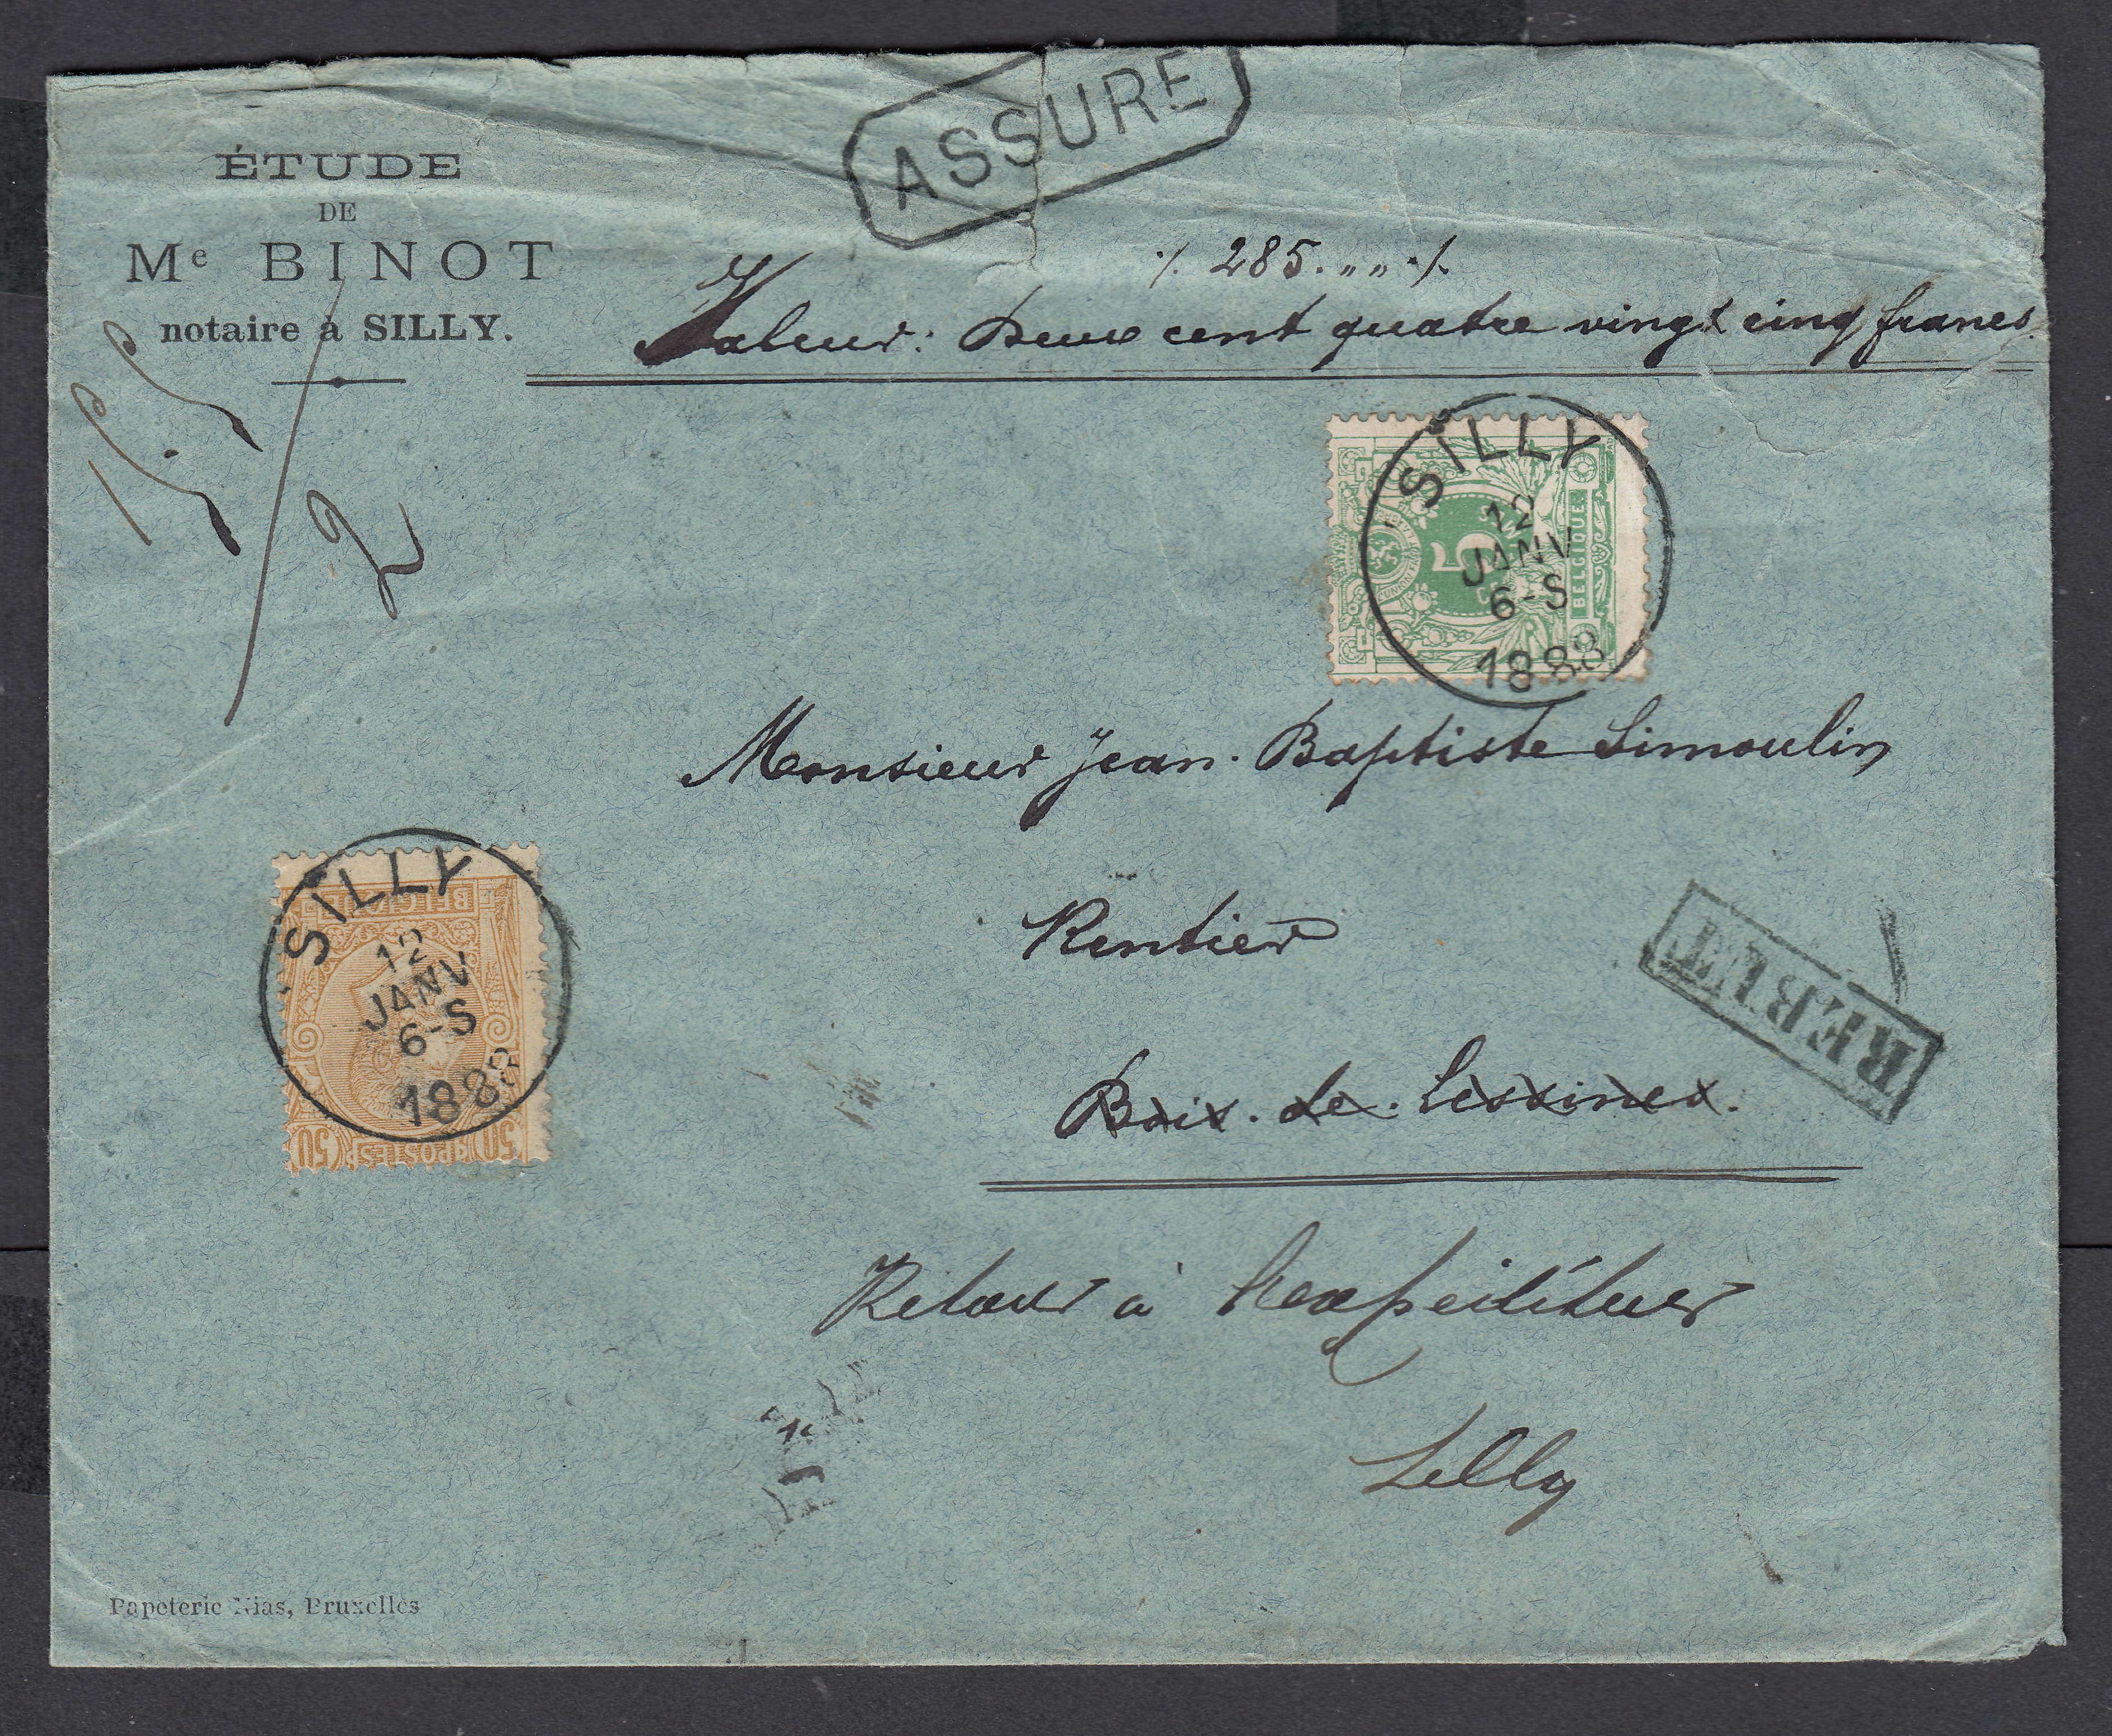 ASSURE
ÉTUDE
DE
Me BINOT
notaire à SILLY.
./. 285. „ „ ./.
Valeur: Deux cent quatre vingt cinq francs.
15
2
SILLY
12
JANV
6-S
1888
5
BELGIQUE
Monsieur Jean-Baptiste Limoulin
SILLY
12
JANV
6-S
1888
BELGIQUE
50 POSTES 50
Rentier
REBUT
Bois. de. Lessines.
Retour à l'expéditeur
Silly
Papeterie Nias, Bruxelles